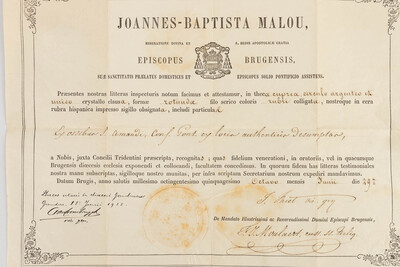 JOANNES-BAPTISTA MALOU,
MISERATIONE DIVINA ET S. SEDIS APOSTOLICÆ GRATIA
EPISCOPUS BRUGENSIS,
SUÆ SANCTITATIS PRÆLATUS DOMESTICUS ET EPISCOPUS SOLIO PONTIFICIO ASSISTENS,
Præsentes nostras litteras inspecturis notum facimus et attestamur, in theca cuprea circulo argenteo et
unico crystallo clausa, formæ rotunda filo serico coloris rubri colligata, nostroque in cera
rubra hispanica impresso sigillo obsignata, includi particulas
S. Amandi, Conf. Pont. ex locis authenticis desumptas,
a Nobis, juxta Concilii Tridentini præscripta, recognitas; quas fidelium venerationi, in oratoriis, vel in quacumque
Brugensis diœcesis ecclesia exponendi et collocandi, facultatem concedimus. In quorum fidem has litteras testimoniales
nostro manu subscriptas, sigilloque nostro munitas, per infra scriptum Secretarium nostrum expediri mandavimus.
Datum Brugis, anno salutis millesimo octingentesimo quinquagesimo Octavo mensis Junii die
vic. gen.
De Mandato Illustrissimi ac Reverendissimi Domini Episcopi Brugensis,